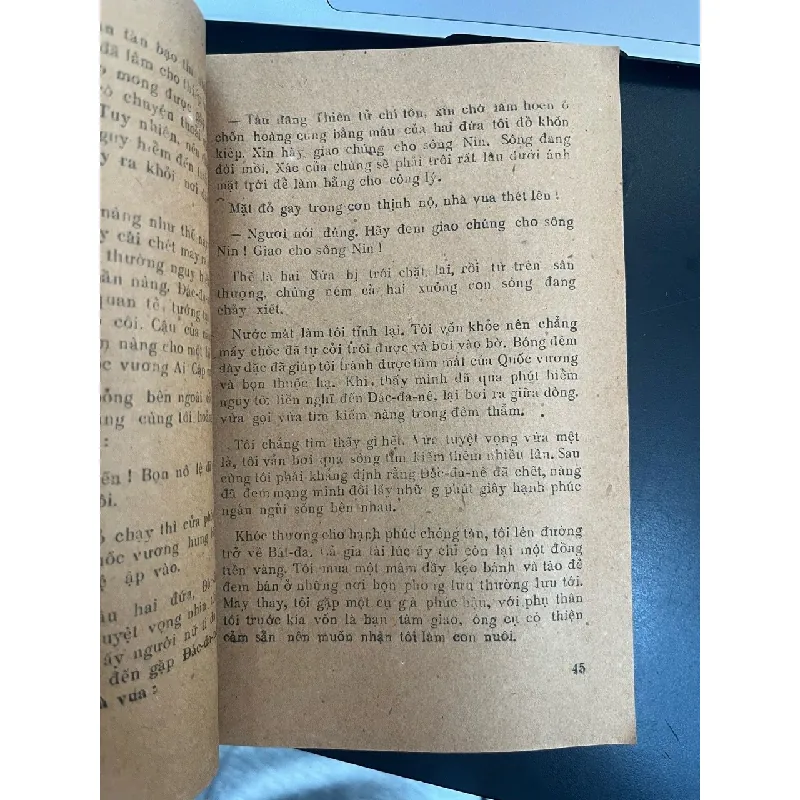 ần tàn bạo thì
đã làm cho
mong được
có chuyện
Tuy nhiên, nếu
nguy hiểm đến
ra khỏi nơi
nàng như thế này
cái chết mấy
thường nguy
Đác-đa-
quan tề, tướng
cõi. Cậu của
nàng cho một
vương Ai Cập
bên ngoài
cùng tôi
:
! Bọn nô lệ
chạy thì cửa
quốc vương hung
ập vào.
hai đứa,
tuyệt vọng nhìn
người nữ
đến gặp Đác-đa-
vua :
— Tâu đấng Thiên tử chí tôn, xin chớ làm hoen ố
chốn hoàng cung bằng máu của hai đứa tôi đồ khốn
kiếp. Xin hãy giao chúng cho sông Nin. Sông đang
đói mồi. Xác của chúng sẽ phải trôi rất lâu dưới ánh
mặt trời để làm bằng cho công lý.
Mặt đỏ gay trong cơn thịnh nộ, nhà vua thét lên !
— Ngươi nói đúng. Hãy đem giao chúng cho sông
Nin ! Giao cho sông Nin !
Thế là hai đứa bị trói chặt lại, rồi từ trên sân
thượng, chúng ném cả hai xuống con sông đang
chảy xiết.
Nước mát làm tôi tỉnh lại. Tôi vốn khỏe nên chẳng
mấy chốc đã tự cởi trói được và bơi vào bờ. Bóng đêm
dày đặc đã giúp tôi tránh được tầm mắt của Quốc vương
và bọn thuộc hạ. Khi thấy mình đã qua phút hiểm
nguy tôi liền nghĩ đến Đác-đa-nê, lại bơi ra giữa dòng,
vừa gọi vừa tìm kiếm nàng trong đêm thẳm.
Tôi chẳng tìm thấy gì hết. Vừa tuyệt vọng vừa mệt
lả, tôi vẫn bơi qua sông tìm kiếm thêm nhiều lần. Sau
cùng tôi phải khẳng định rằng Đắc-đa-nê đã chết, nàng
đã đem mạng mình đổi lấy nhữ g phút giây hạnh phúc
ngắn ngủi sống bên nhau.
Khóc thương cho hạnh phúc chóng tàn, tôi lên đường
trở về Bát-đa. Cả gia tài lúc ấy chỉ còn lại một đồng
tiền vàng. Tôi mua một mâm đầy kẹo bánh và táo để
đem bán ở những nơi bọn phong lưu thường lưu tới.
May thay, tôi gặp một cụ già phúc hậu, với phụ thân
tôi trước kia vốn là bạn tâm giao, ông cụ có thiện
cảm sẵn nên muốn nhận tôi làm con nuôi.
45